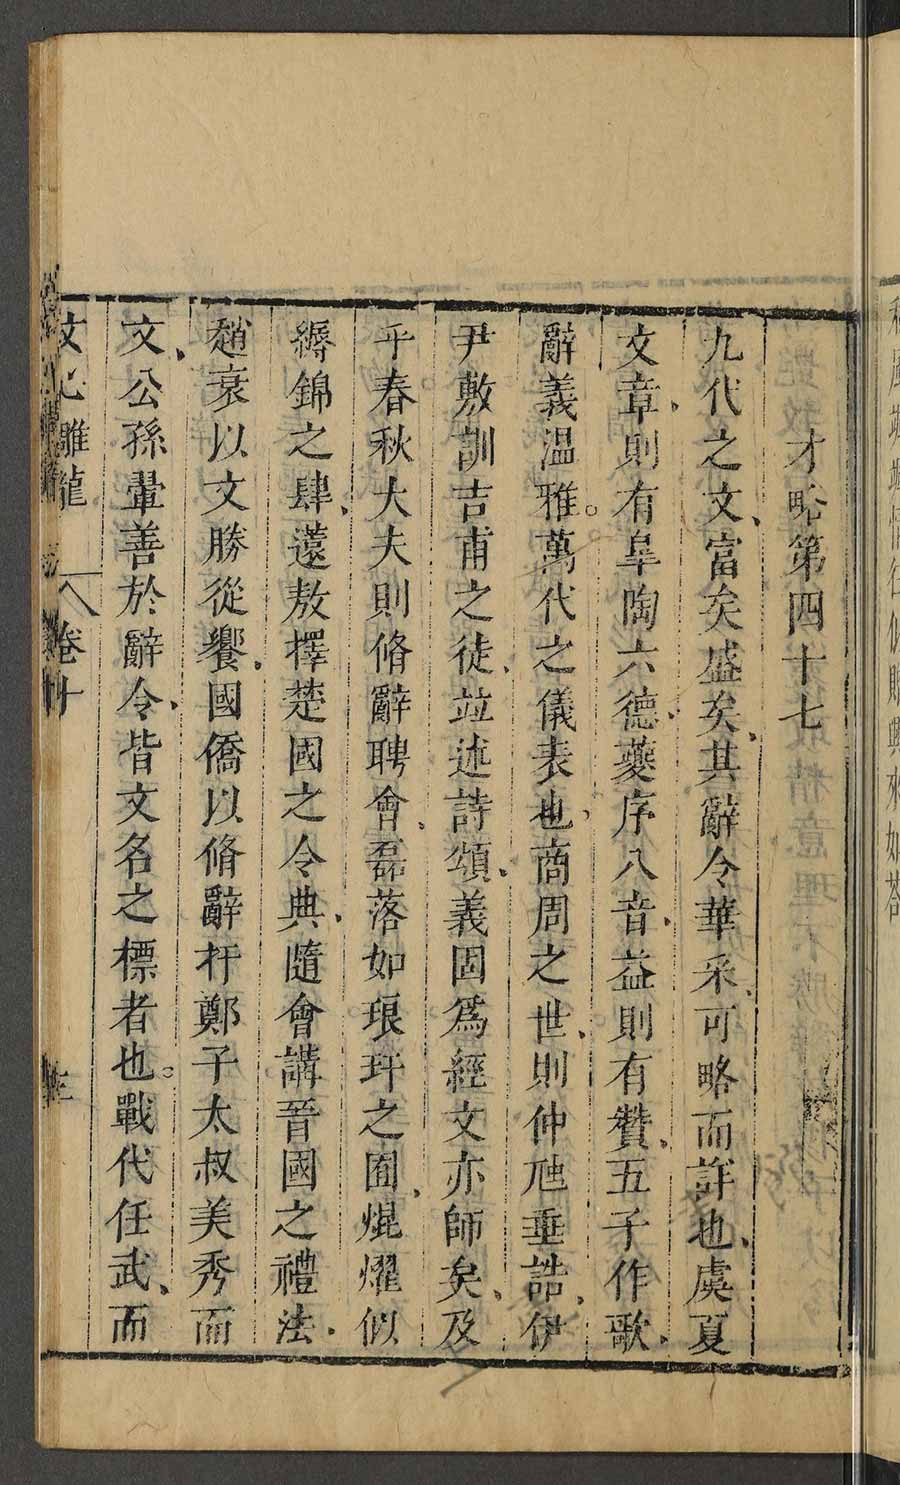 才略第四十七
九代之文、富矣盛矣、其辭令華采、可略而詳也、虞夏
文章、則有皐陶六德、夔序八音、益則有贊、五子作歌、
辭義温雅。萬代之儀表也、商周之世、則仲虺垂誥、伊
尹敷訓吉甫之徒、竝述詩頌、義固爲經文亦師矣、及
乎春秋大夫則脩辭聘會、磊落如琅玕之囿、焜燿似
縟錦之肆、薳敖擇楚國之令典、隨會講晉國之禮法、
趙衰以文勝從饗、國僑以脩辭扞鄭子太叔美秀而
文、公孫翬善於辭令、皆文名之標者也。戰代任武、而
文心雕龍 卷十